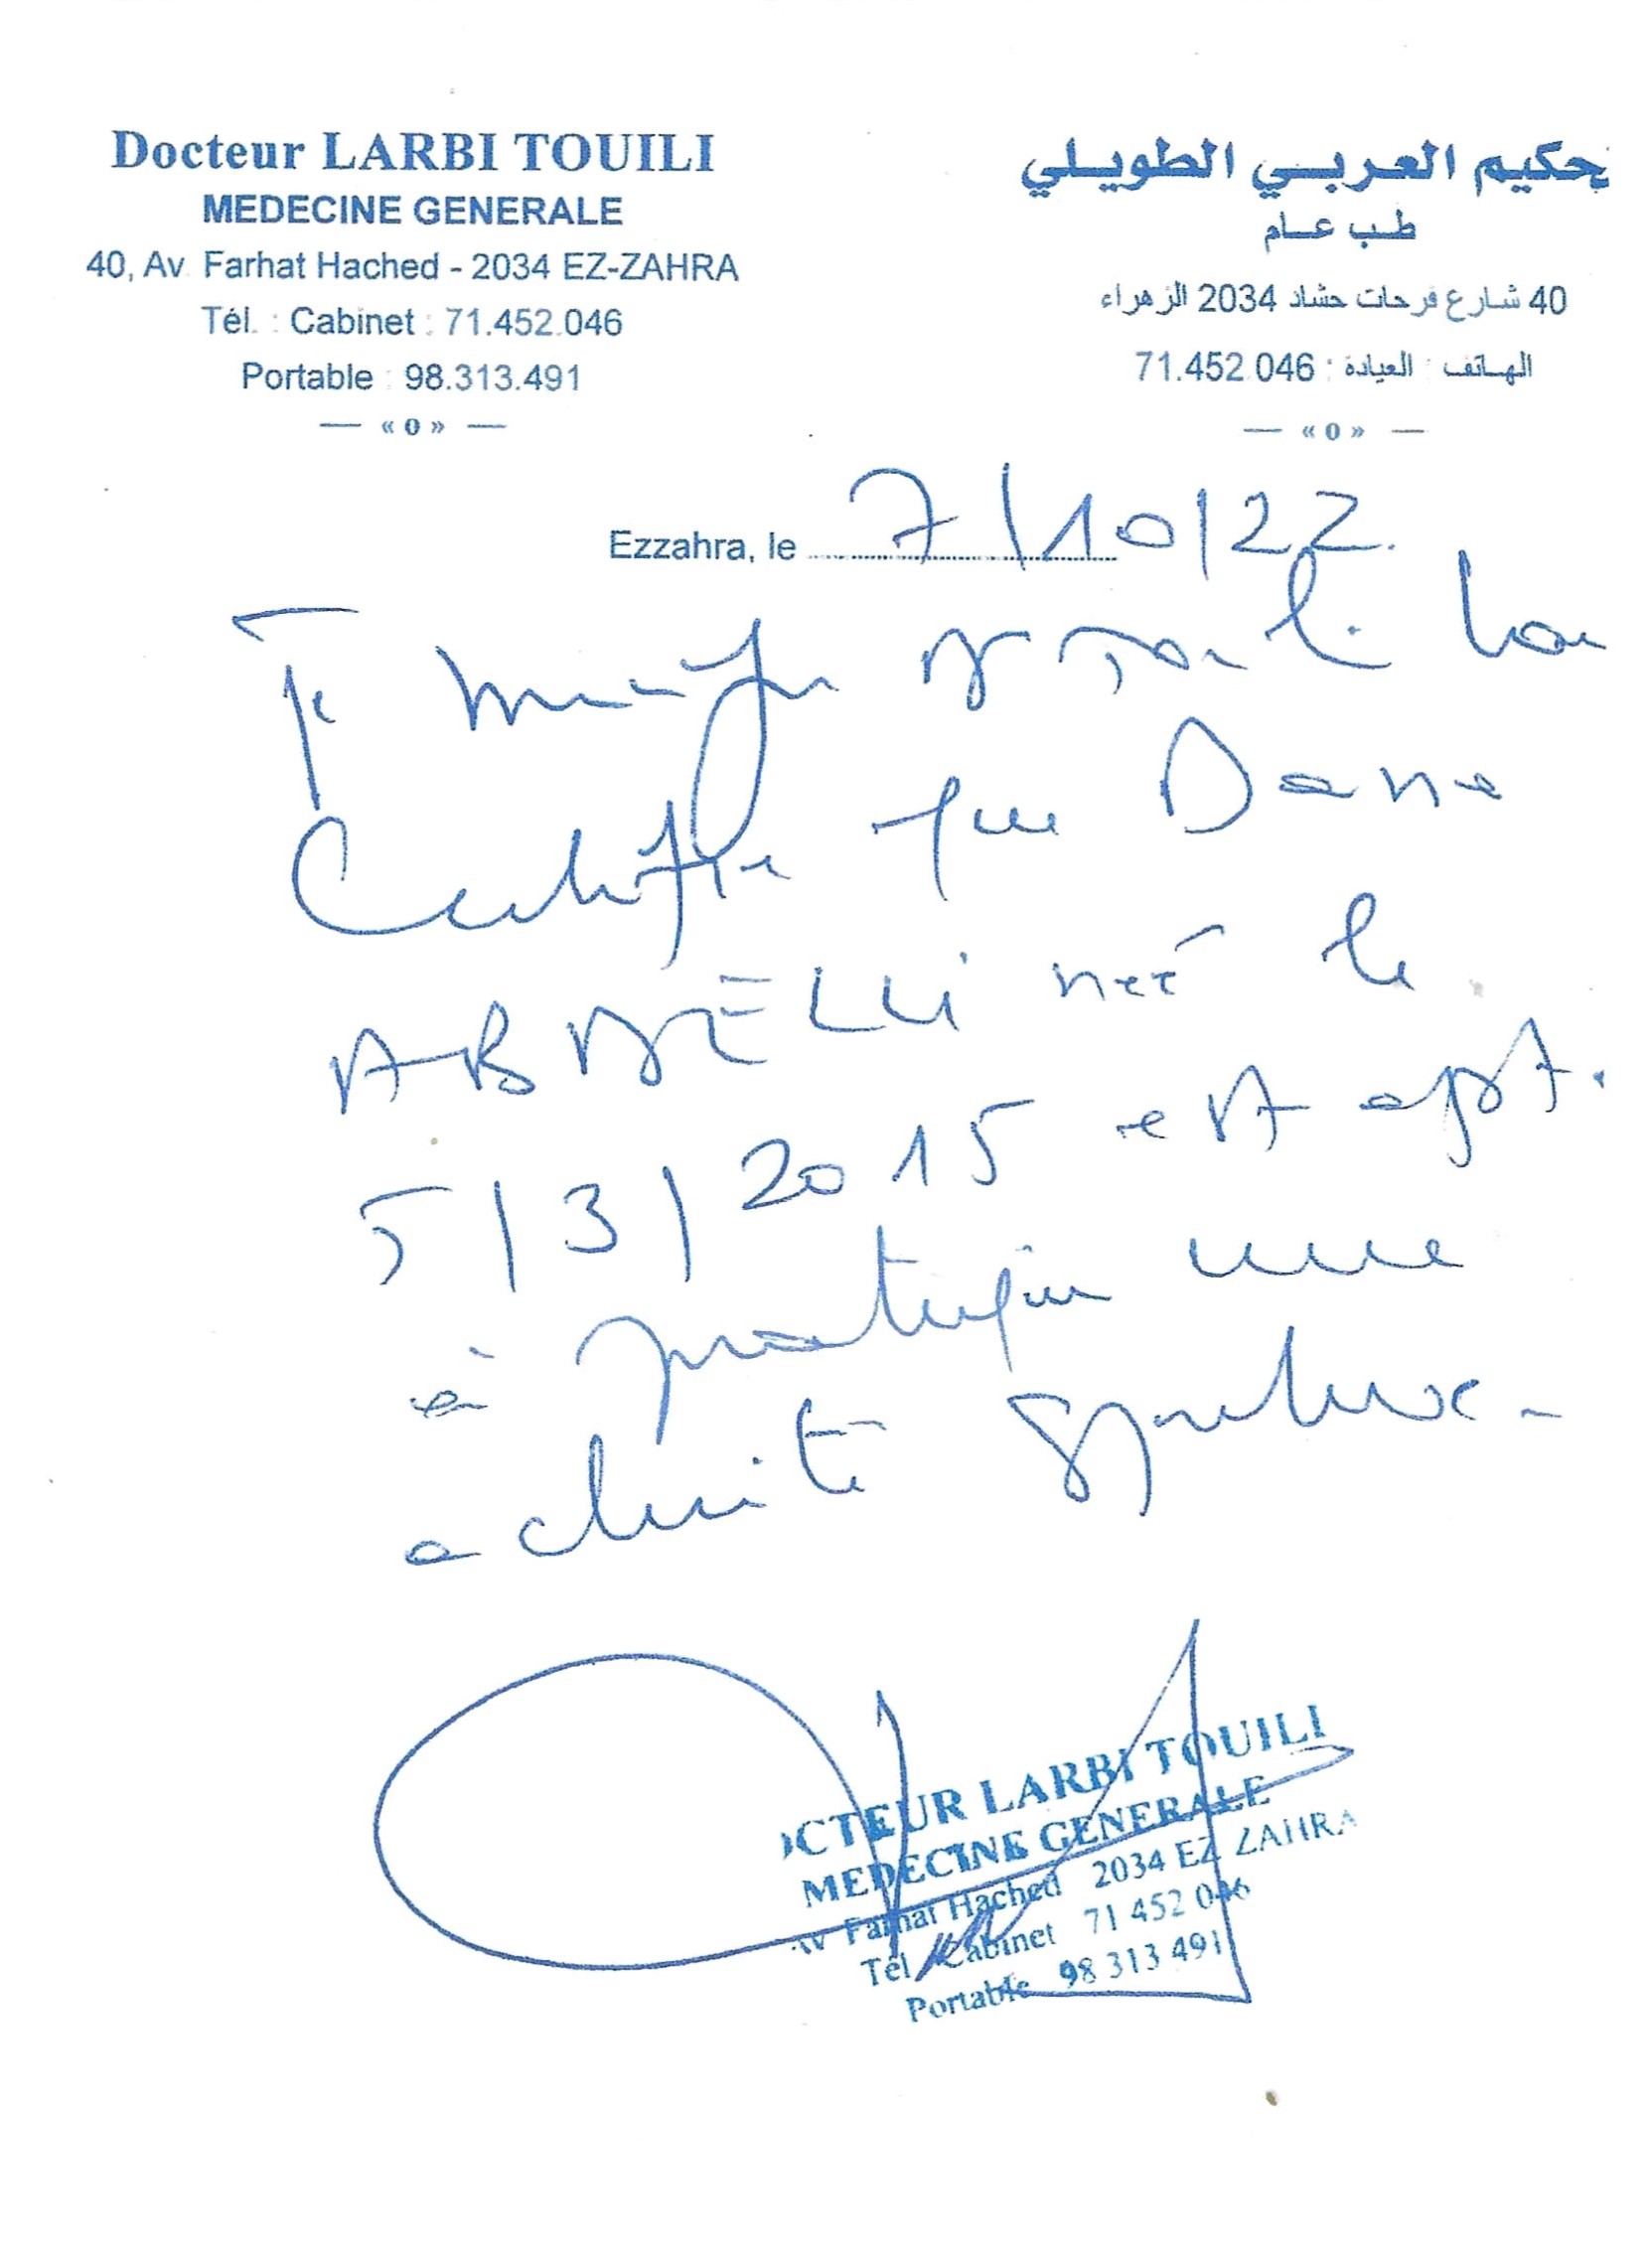 Docteur LARBI TOUILI
MEDECINE GENERALE
40, Av. Farhat Hached - 2034 EZ-ZAHRA
Tél. : Cabinet : 71.452.046
Portable : 98.313.491
— « 0 » —
حكيم العربي الطويلي
طب عام
40 شارع فرحات حشاد 2034 الزهراء
الهاتف : العيادة : 71.452.046
— « 0 » —
Ezzahra, le 7/10/22.
Je
Certifie que Dana
ABDELLI née le
5/3/2015 est apte
à pratiquer une
activité sportive.
OCTEUR LARBI TOUILI
MEDECINE GENERALE
Av Farhat Hached 2034 EZ ZAHRA
Tél Cabinet 71 452 046
Portable 98 313 491